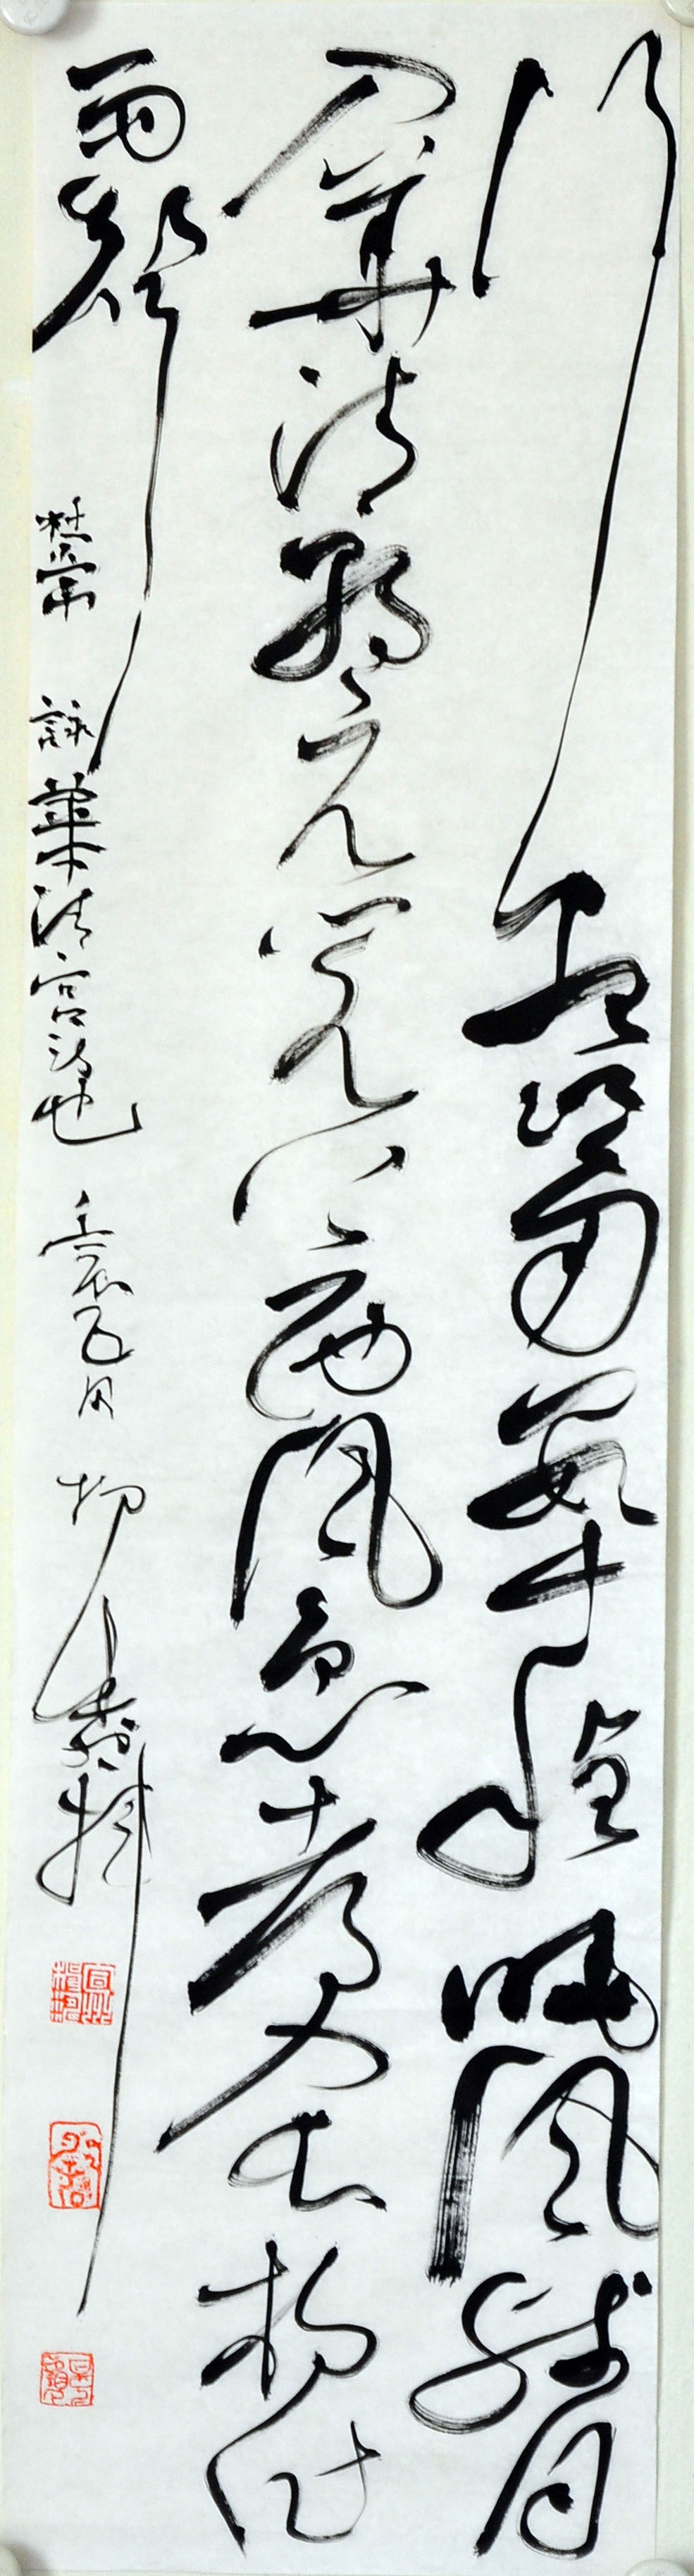 行盡江南數十程曉風殘月
入華清朝元閣上西風急都入長楊作
雨聲 杜常 詠華清宮詩也 壬辰